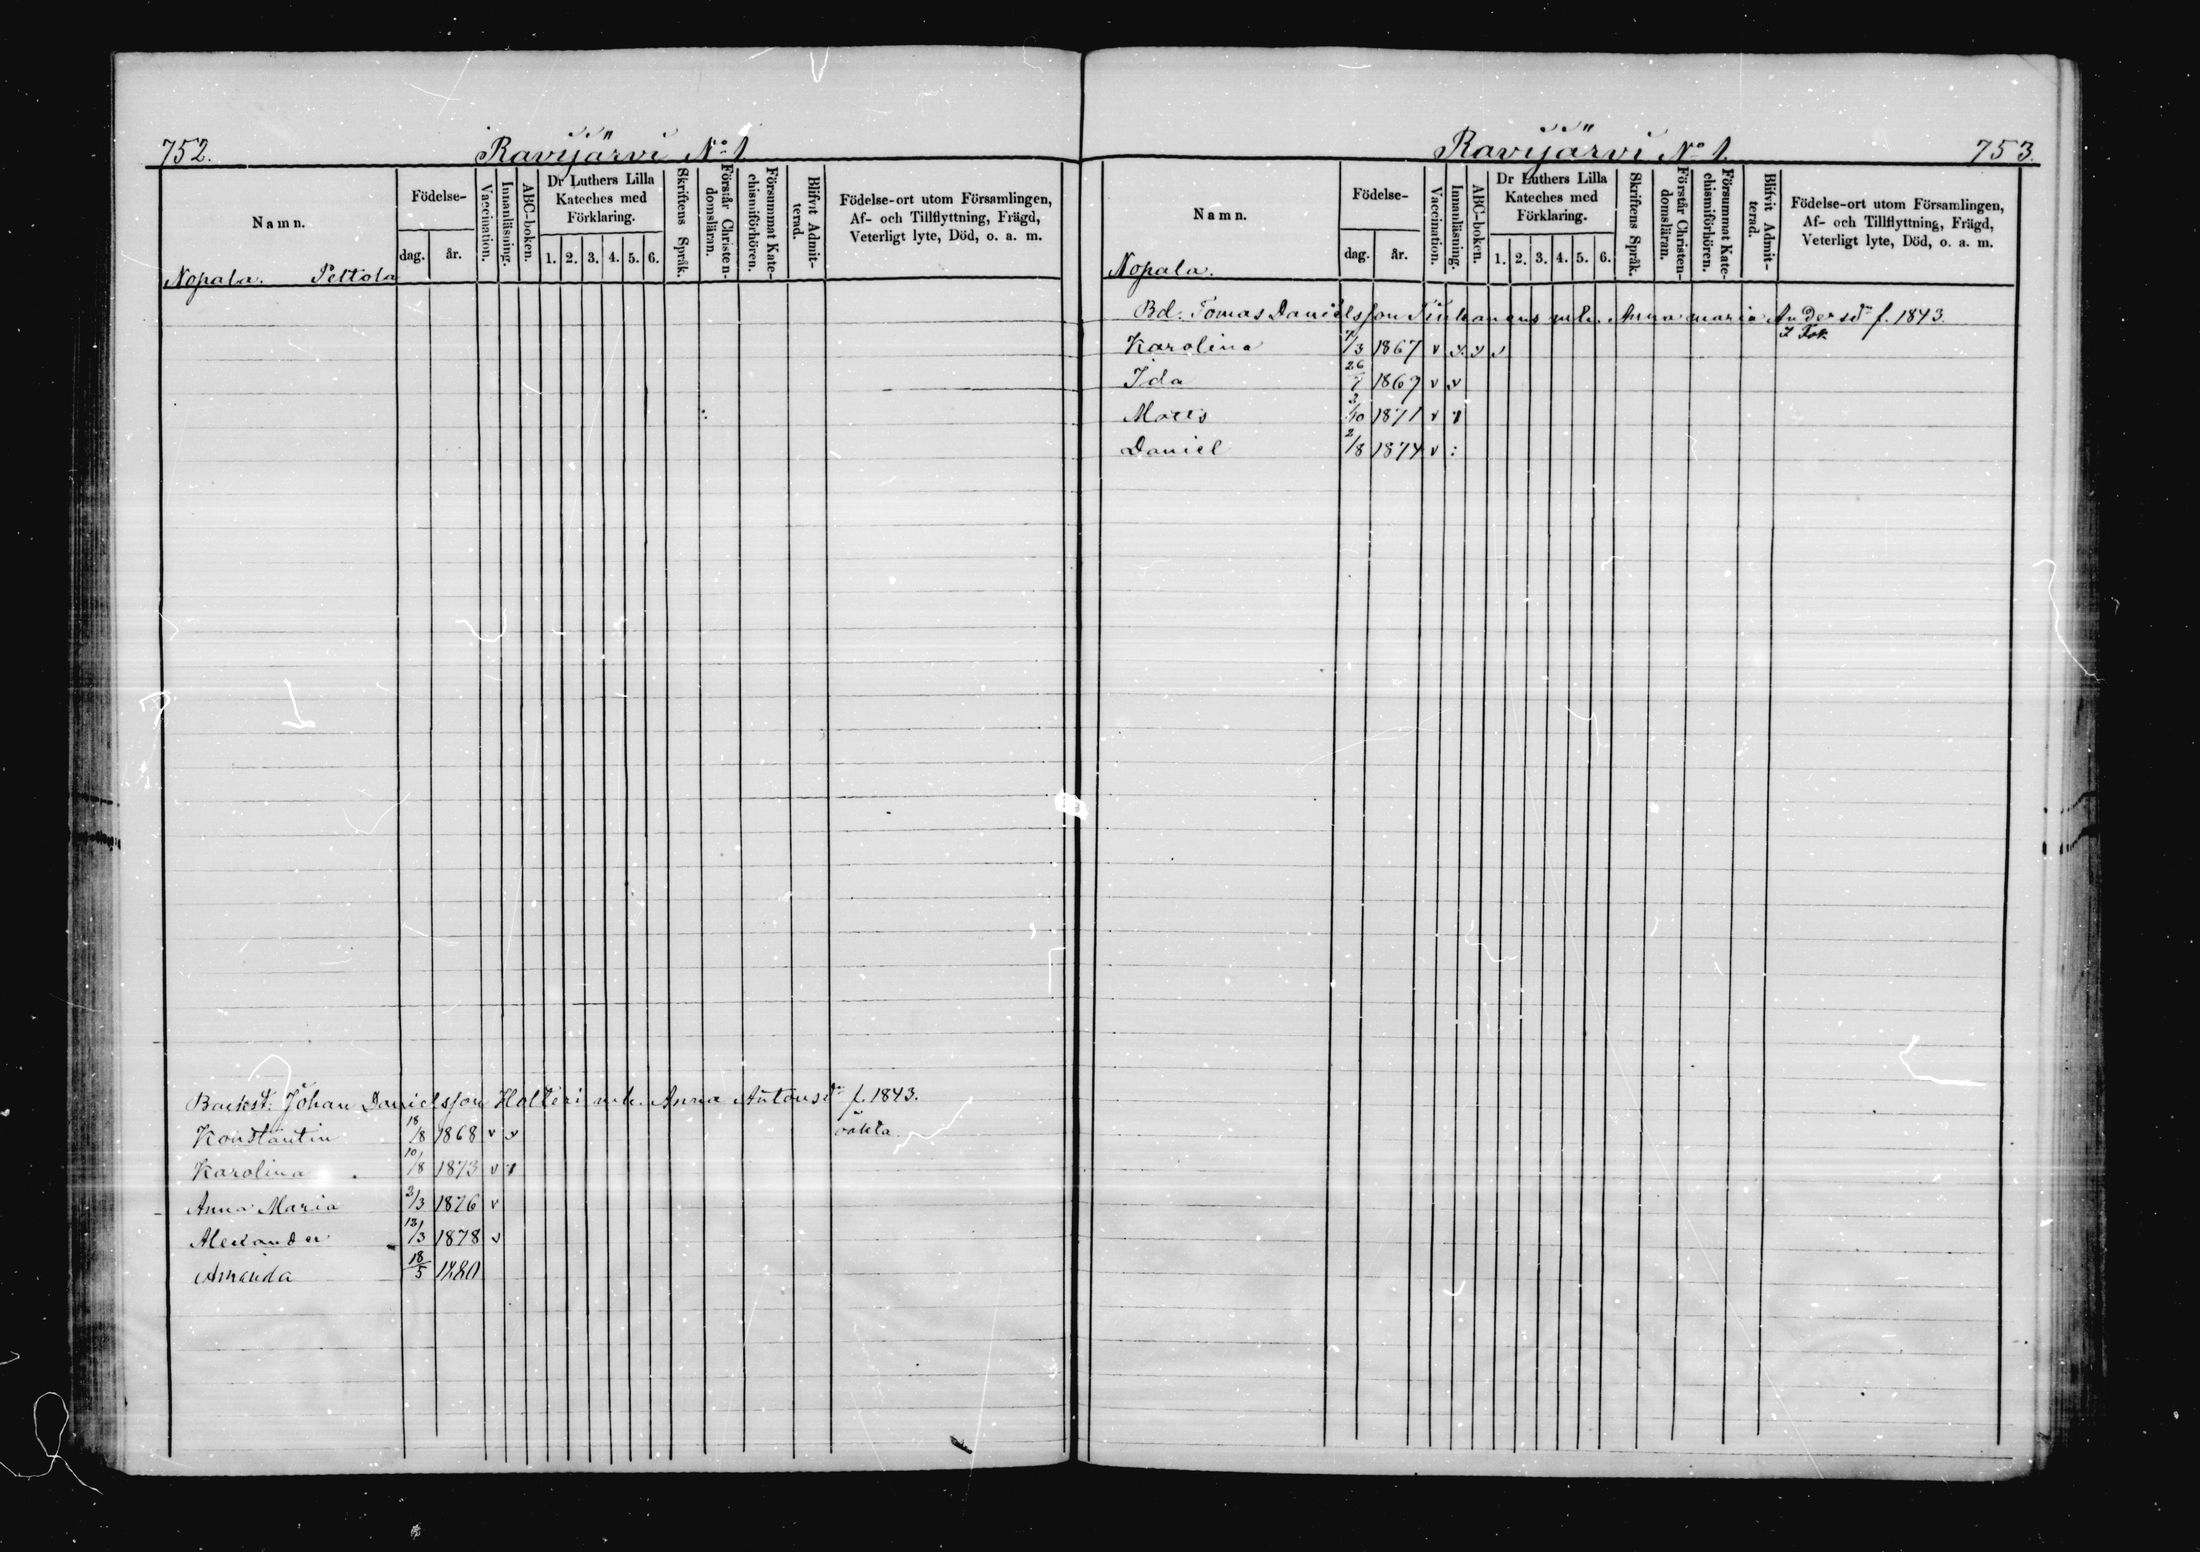 752. Ravijärvi No 1
Namn. Födelse- dag. år. Vaccination. Innanläsning. ABC-boken. Dr Luthers Lilla Kateches med Förklaring. 1. 2. 3. 4. 5. 6. Skriftens Språk. Förstår Christendomsläran. Försummat Katechismiförhören. Blifvit Admitterad. Födelse-ort utom Församlingen, Af- och Tillflyttning, Frägd, Veterligt lyte, Död, o. a. m.
Nopala. Peltola
Backst. Johan Danielsson Holtteri m.h. Anna Antonsdr f. 1843.
Konstantin 18/8 1868 v v oäkta
Karolina 10/8 1873 v
Anna Maria 3/3 1876 v
Alexander 13/3 1878 v
Amanda 18/5 1880
Ravijärvi No 1. 753.
Namn. Födelse- dag. år. Vaccination. Innanläsning. ABC-boken. Dr Luthers Lilla Kateches med Förklaring. 1. 2. 3. 4. 5. 6. Skriftens Språk. Förstår Christendomsläran. Försummat Katechismiförhören. Blifvit Admitterad. Födelse-ort utom Församlingen, Af- och Tillflyttning, Frägd, Veterligt lyte, Död, o. a. m.
Nopala.
Bd. Tomas Danielsson m.h. Anna Maria Andersdr f. 1843.
Karolina 7/3 1867 v v v v
Ida 26/7 1869 v v
Matts 3/10 1871 v
Daniel 2/8 1874 v :